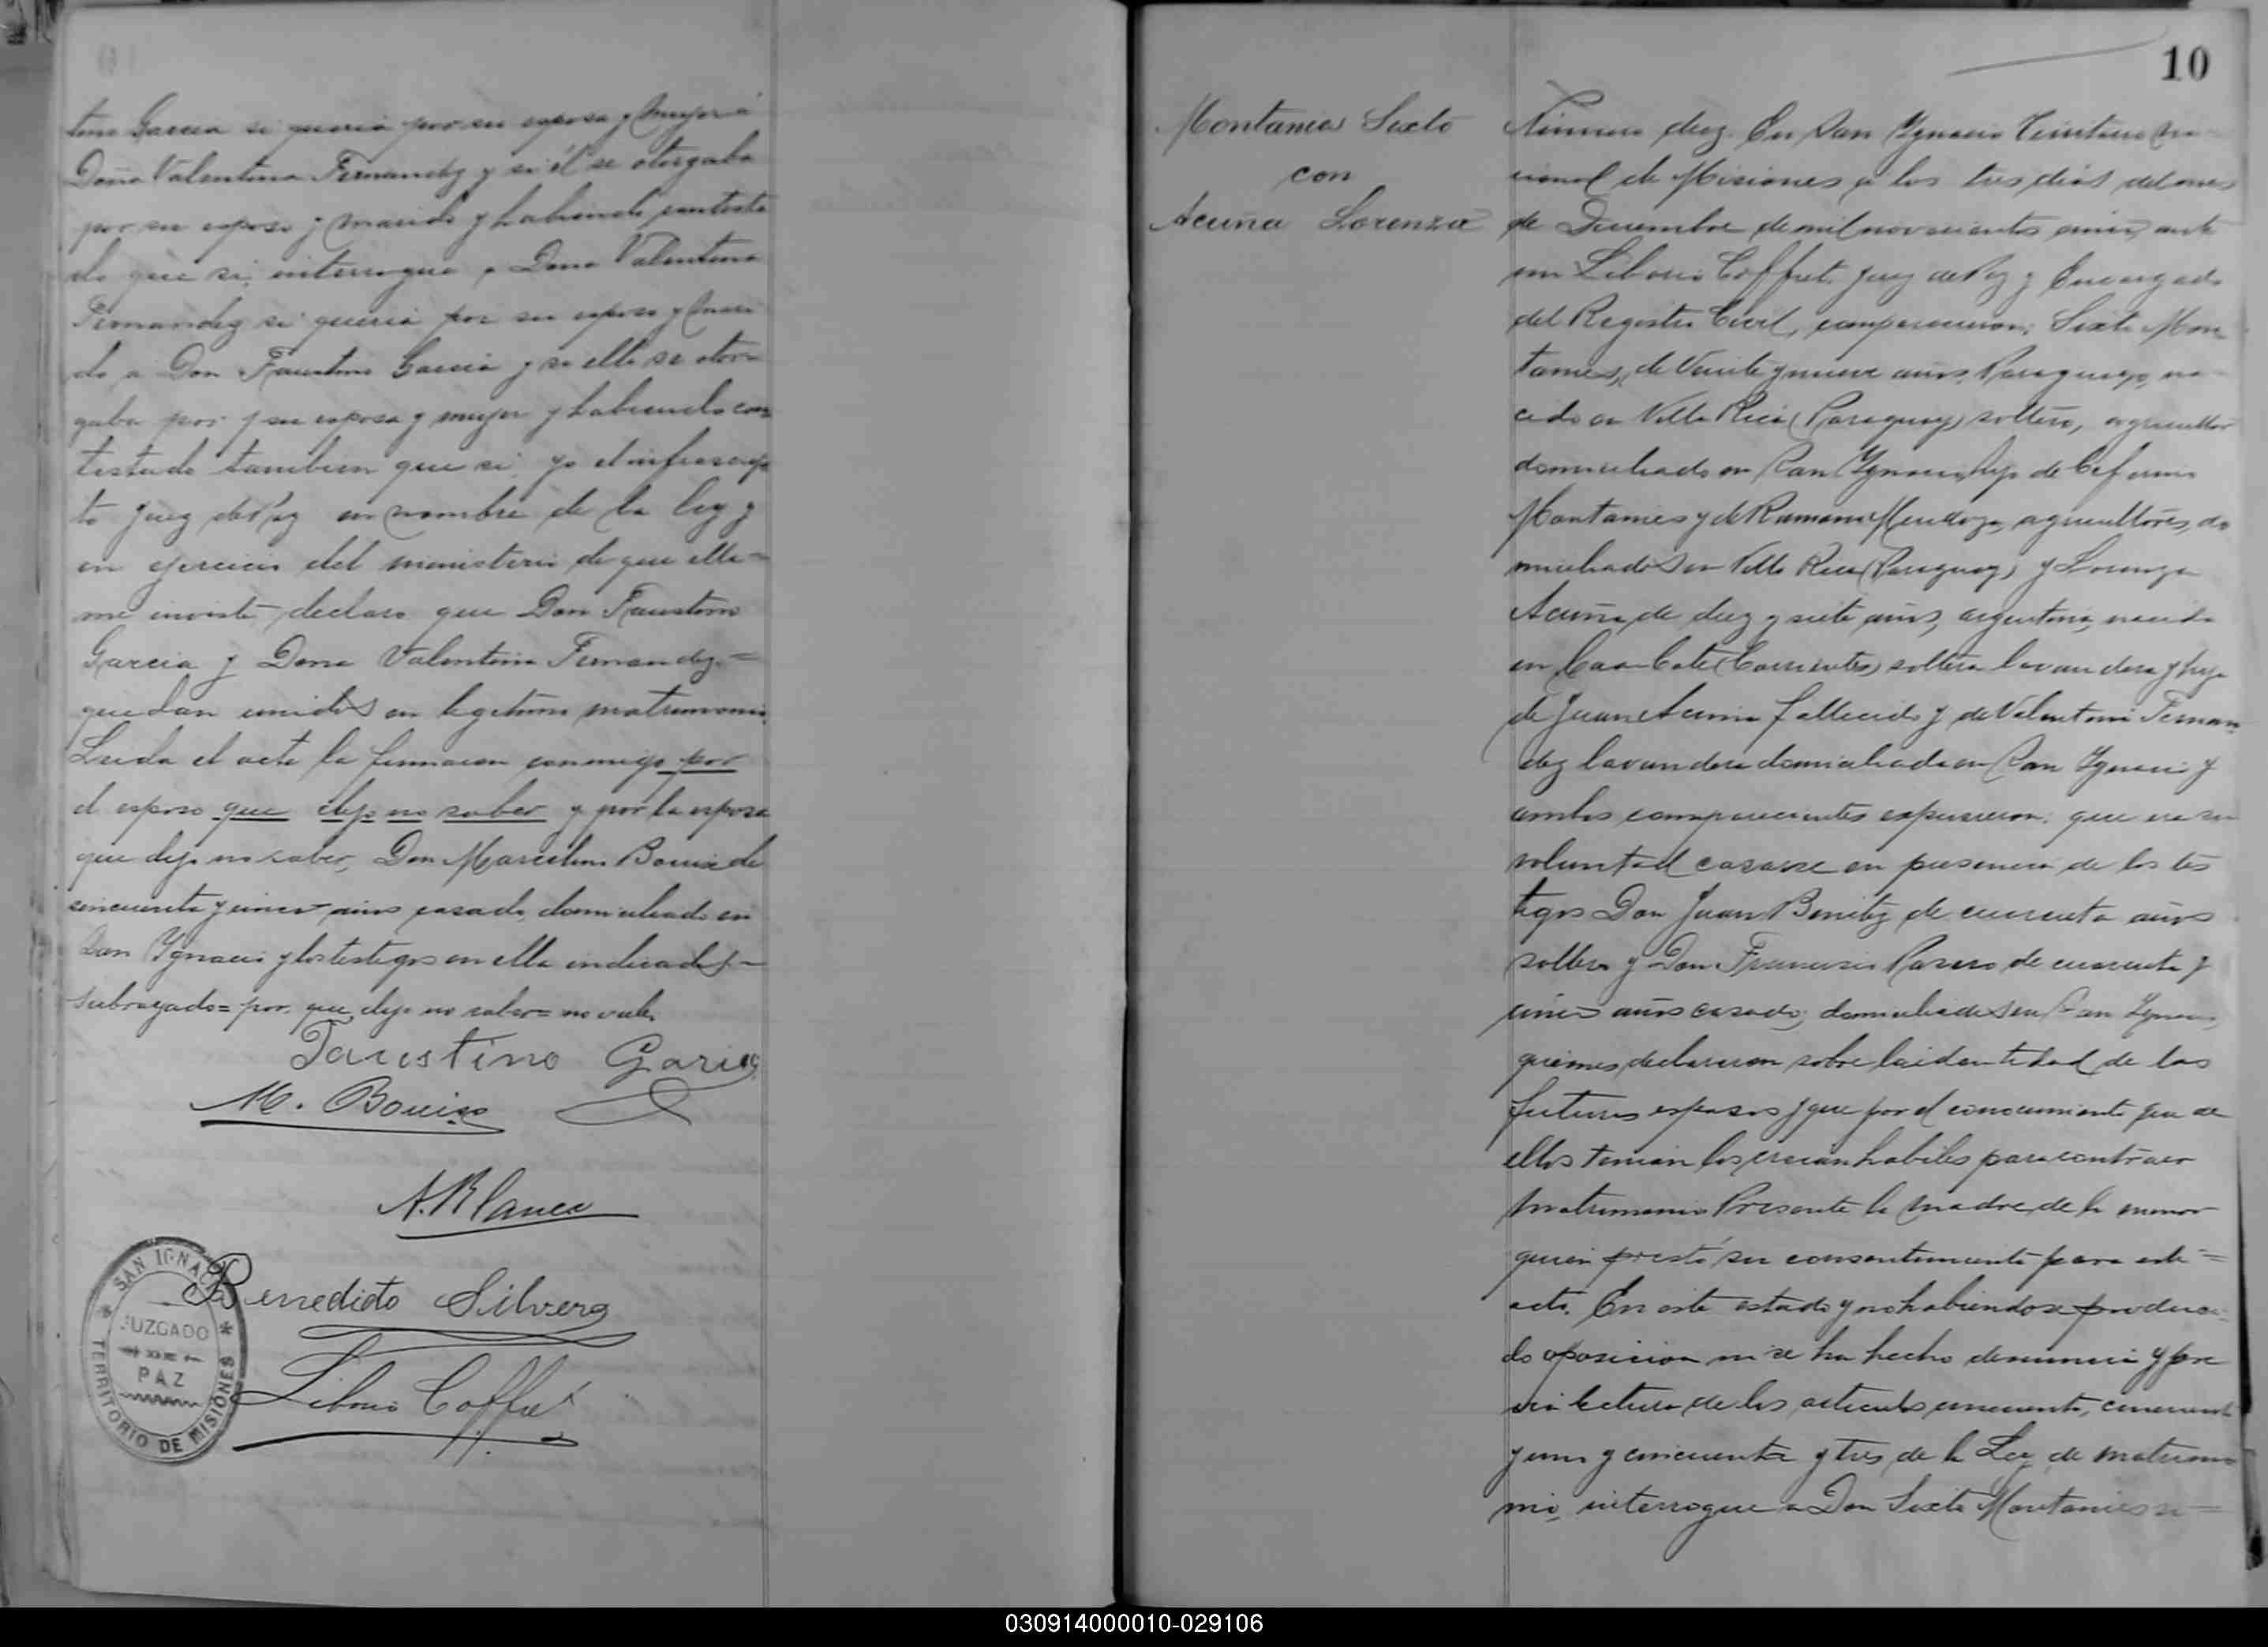 tino Garcia si queria por su esposa y mujer á
Doña Valentina Fernandez y si él se otorgaba
por su esposo y marido y habiendo contesta
do que si, interrogue a Dona Valentina
Fernandez si queria por su esposo y mari
do a Don Faustino Garcia y si ella se otor-
gaba por su esposa y mujer y habiendo con
testado tambien que si yo el infrascrip
to Juez de Paz en nombre de la ley y
en ejercicio del ministerio de que ella=
me inviste, declaro que Don Faustino
Garcia y Dona Valentina Fernandez=
quedan unidos en legitimo matrimonio.
Leida el acta la firmaron conmigo por
el esposo que dijo no saber y por la esposa
que dijo no saber, Don Marcelino Bouix de
cincuenta y cinco años casado, domiciliado en
San Ygnacio y los testigos en ella indicados-
Subrayado=por que dijo no saber=no vale.
Faustino Garcia
M. Bouix
A. Blanco
Benedicto Silvera
Liborio Coffret
SAN IGNACIO
JUZGADO
DE
PAZ
TERRITORIO DE MISIONES
10
Montanies Sixto
con
Acuña Lorenza
Número diez. En San Ygnacio Territorio Na
cional de Misiones a los tres dias del mes
de Diciembre de mil novecientos cinco, ante
mi Liborio Coffret. Juez de Paz y Encargado
del Registro Civil, comparecieron: Sixto Mon
tanies, de veinte y nueve años, Paraguayo, na-
cido en Villa Rica (Paraguay) soltero, agricultor
domiciliado en San Ygnacio, hijo de Ceferino
Montanies y de Ramona Mendoza, agricultores, do
miciliados en Villa Rica (Paraguay) y Lorenza
Acuña, de diez y siete años, argentina, nacida
en Caa-Cati (Corrientes) soltera lavandera y hija
de Juan Acuña fallecido y de Valentina Fernan
dez lavandera domiciliada en San Ygnacio y
ambos comparecientes expusieron: que era su
voluntad casarse en presencia de los tes
tigos Don Juan Benitez de cuarenta años
soltero y Don Francisco de cuarenta y
cinco años casado, domiciliados en San Ygnacio,
quienes declararon sobre la identidad de los
futuros esposos y que por el conocimiento que de
ellos tenian los creian habiles para contraer
matrimonio Presente la madre de la menor
quien prestó su consentimiento para este=
acto. En este estado y no habiendose produci-
do oposicion ni se ha hecho denuncia y pre
via lectura de los articulos cincuenta, cincuenta
y uno y cincuenta y tres de la Ley de matrimo
nio, interrogue a Don Sixto Montanies si=
030914000010-029106